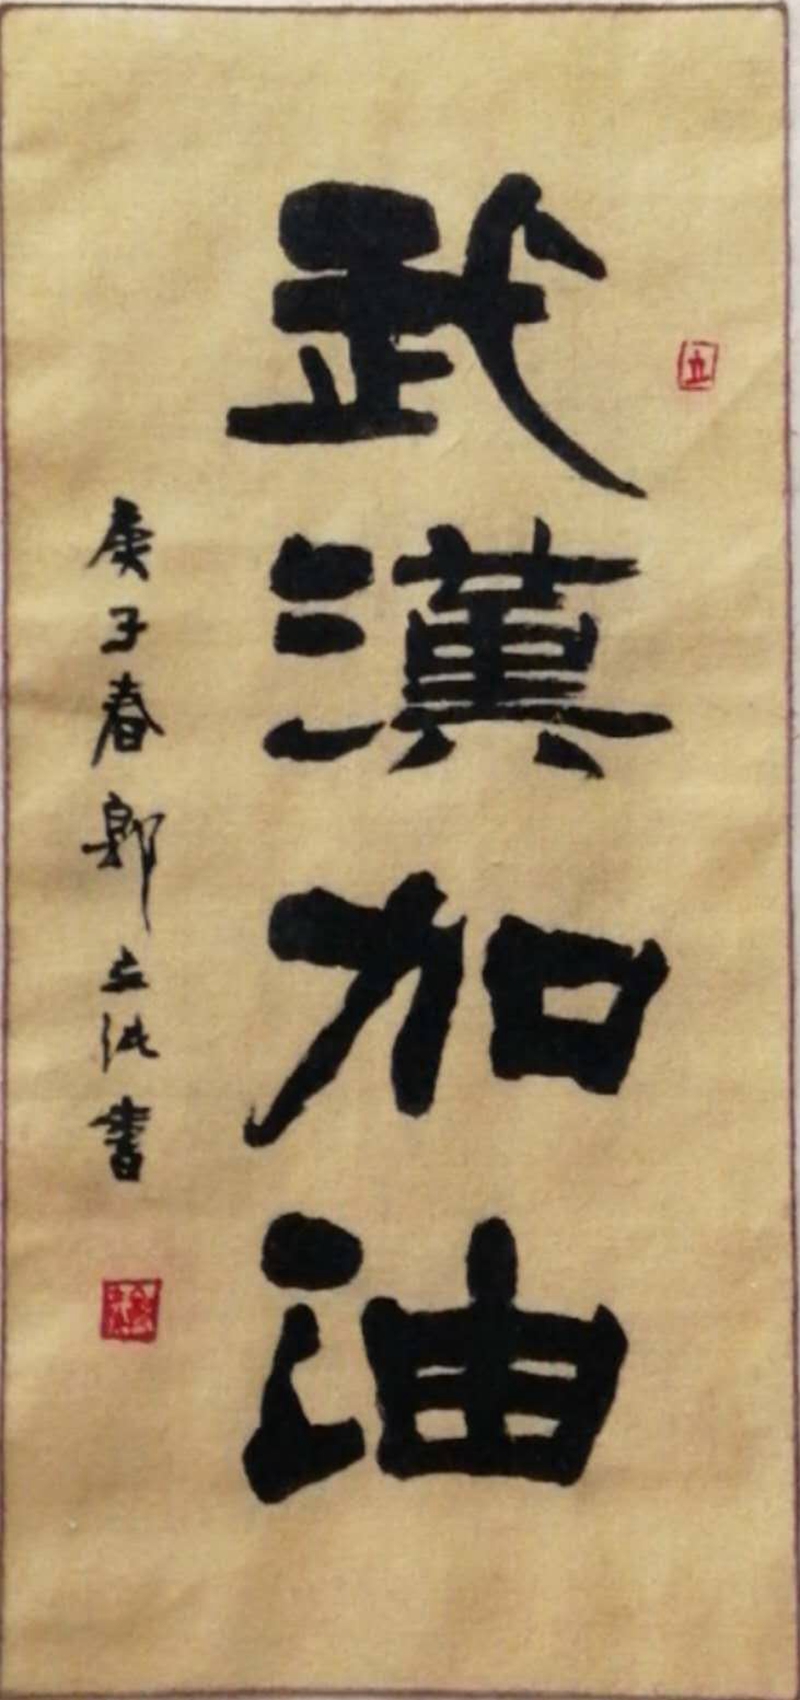 武漢加油
庚子春郭立洪書
立